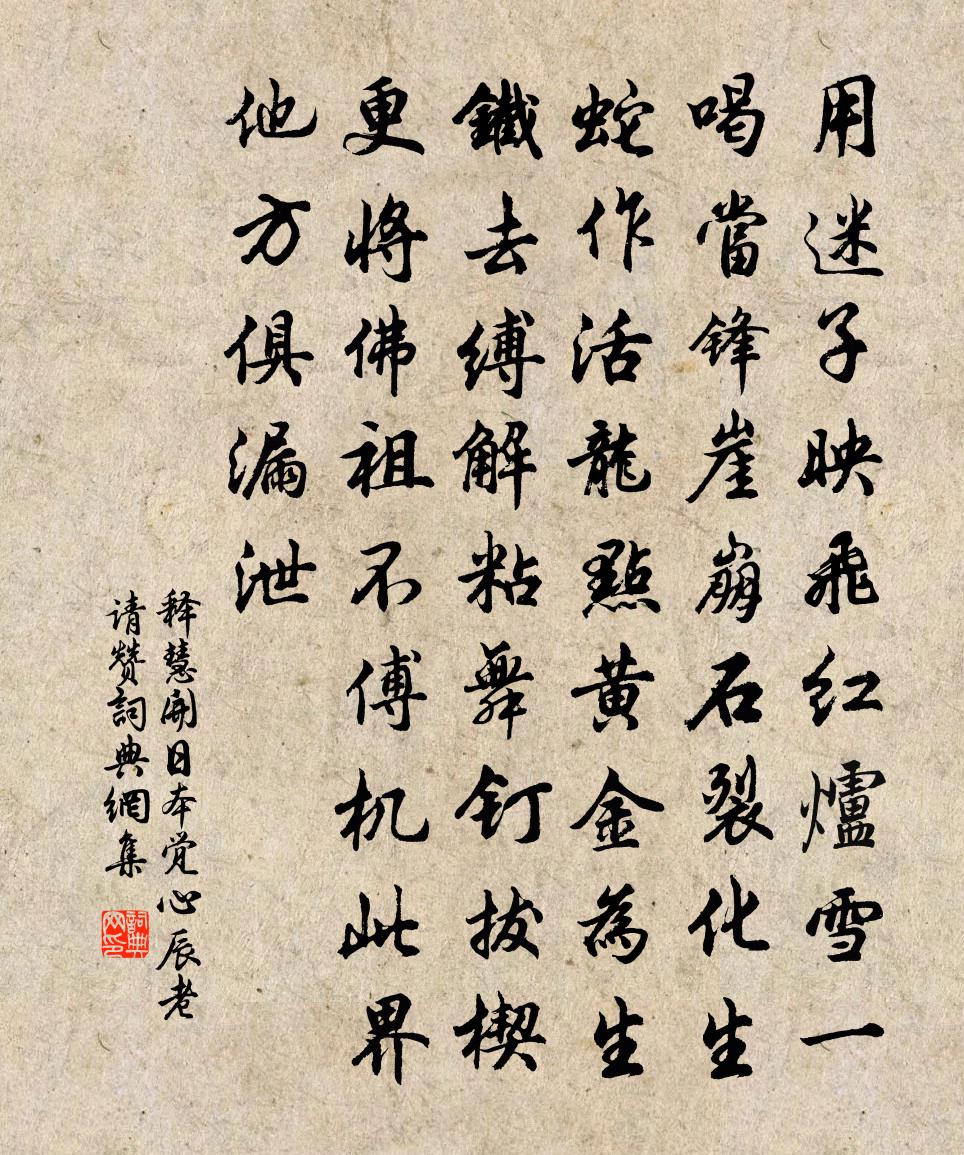 用迷子映飛红爐雪一
喝當鋒崖崩石裂化生
蛇作活龍點黃金為生
鐵去縛解粘舞钉拔楔
更將佛祖不傅机此界
他方俱漏泄
释慧開日本觉心辰老
请赞詞典網集
詞典网印